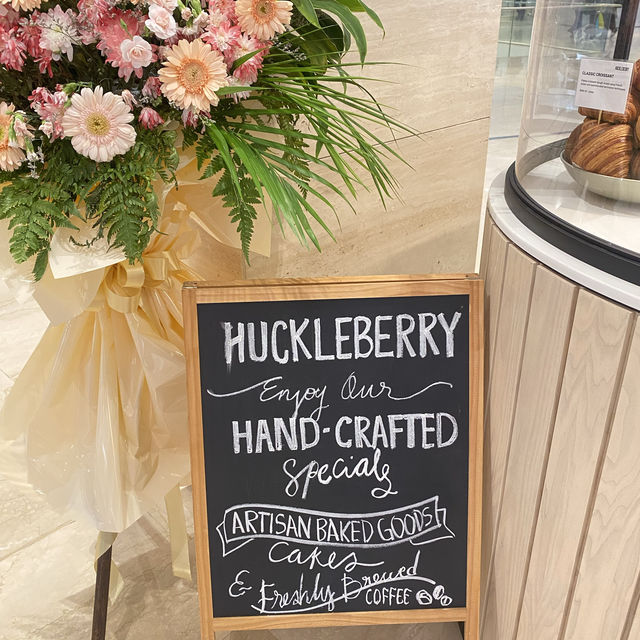 CLASSIC CROISSANT
HUCKLEBERRY
Enjoy Our
HAND-CRAFTED
Specials
ARTISAN BAKED GOODS
Cakes
& Freshly Brewed
COFFEE